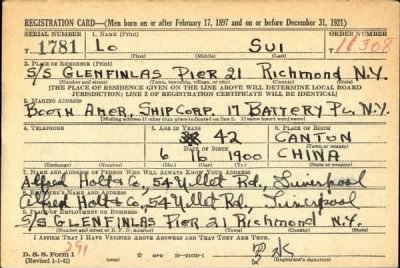 REGISTRATION CARD—(Men born on or after February 17, 1897 and on or before December 31, 1921)
SERIAL NUMBER 1. NAME (Print) ORDER NUMBER
T 1781 LO SUI 11308
(First) (Middle) (Last)
2. PLACE OF RESIDENCE (Print)
S/S GLENFINLAS PIER 21 Richmond N.Y.
(Number and street) (Town, township, village, or city) (County) (State)
[THE PLACE OF RESIDENCE GIVEN ON THE LINE ABOVE WILL DETERMINE LOCAL BOARD
JURISDICTION; LINE 2 OF REGISTRATION CERTIFICATE WILL BE IDENTICAL]
3. MAILING ADDRESS
BOOTH AMER. SHIP CORP. 17 BATTERY PL. N.Y.
[Mailing address if other than place indicated on line 2. If same insert word same]
4. TELEPHONE 5. AGE IN YEARS 6. PLACE OF BIRTH
42 CANTON
DATE OF BIRTH (Town or county)
6 16 1900 CHINA
(Exchange) (Number) (Mo.) (Day) (Yr.) (State or country)
7. NAME AND ADDRESS OF PERSON WHO WILL ALWAYS KNOW YOUR ADDRESS
Alfred Holt & Co., 54 Ullet Rd., Liverpool
8. EMPLOYER'S NAME AND ADDRESS
Alfred Holt & Co., 54 Ullet Rd., Liverpool
9. PLACE OF EMPLOYMENT OR BUSINESS
S/S GLENFINLAS PIER 21 Richmond N.Y.
(Number and street or R. F. D. number) (Town) (County) (State)
I AFFIRM THAT I HAVE VERIFIED ABOVE ANSWERS AND THAT THEY ARE TRUE.
D. S. S. Form 1
(Revised 1-1-42) (over) ☆ GPO 16—21630-1 (Registrant's signature)